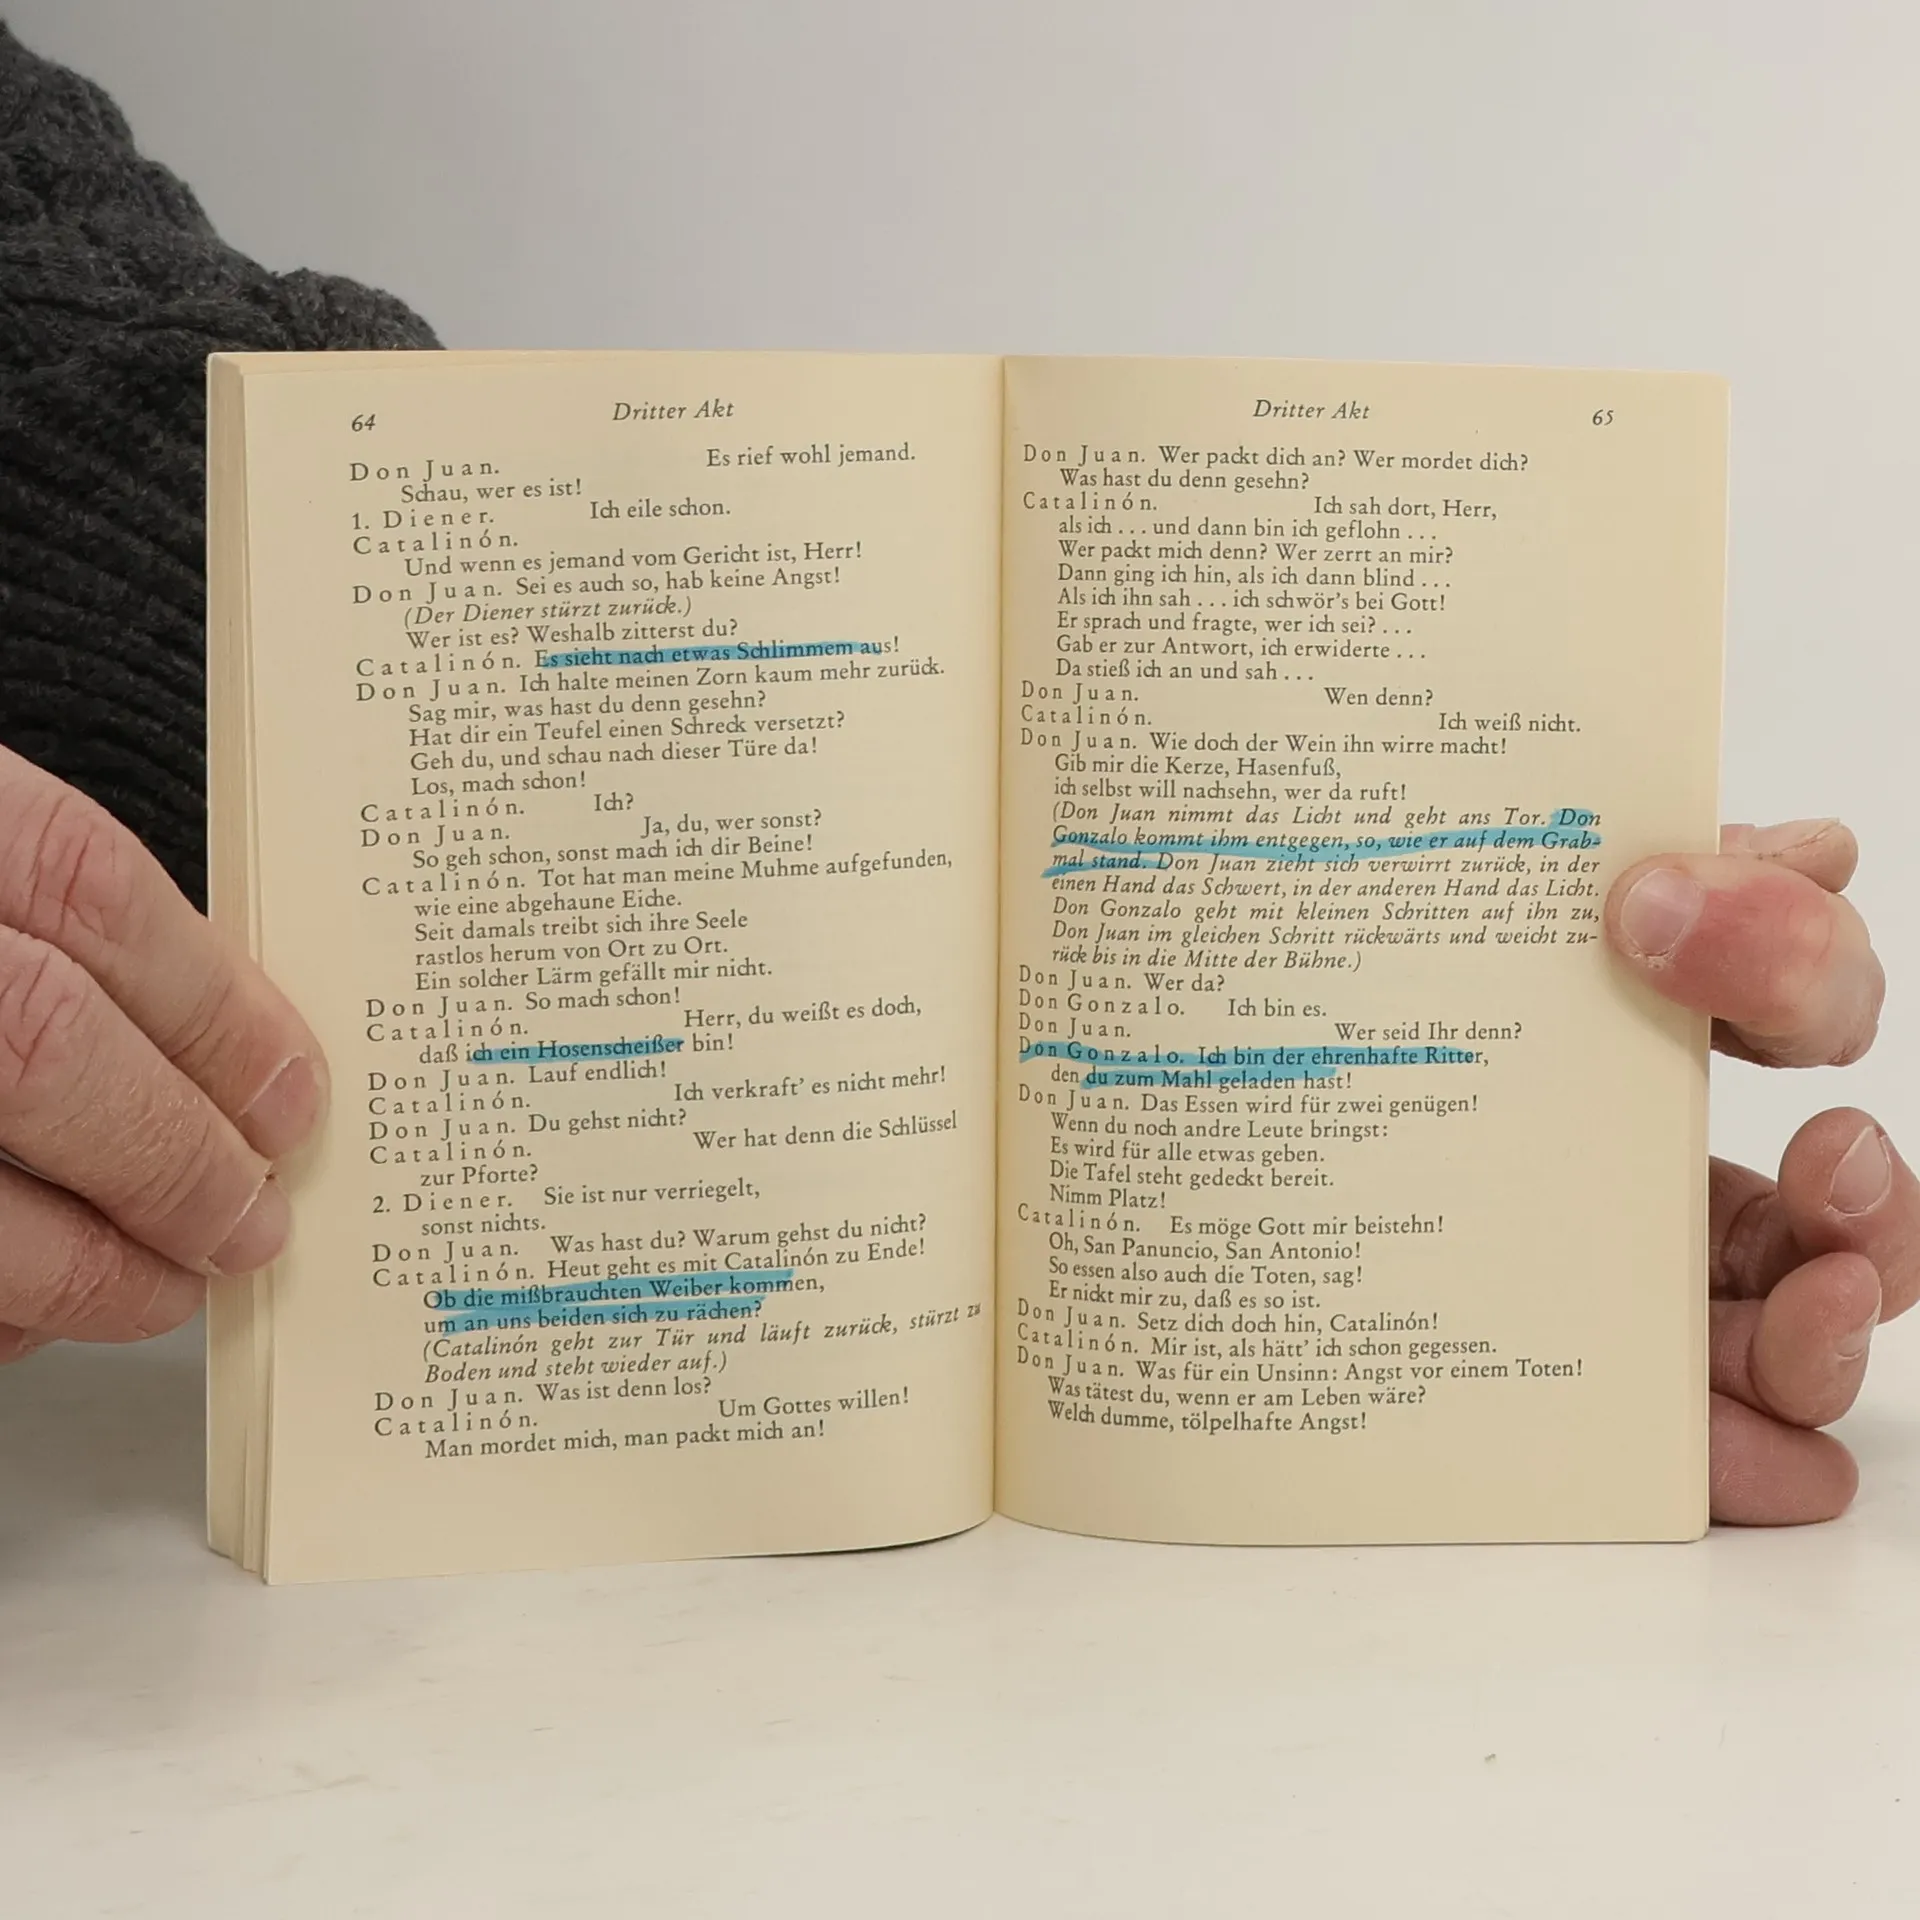 64
Dritter Akt
Don Juan. Es rief wohl jemand.
Schau, wer es ist!
1. Diener. Ich eile schon.
Catalinón.
Und wenn es jemand vom Gericht ist, Herr!
Don Juan. Sei es auch so, hab keine Angst!
(Der Diener stürzt zurück.)
Wer ist es? Weshalb zitterst du?
Catalinón. Es sieht nach etwas Schlimmem aus!
Don Juan. Ich halte meinen Zorn kaum mehr zurück.
Sag mir, was hast du denn gesehn?
Hat dir ein Teufel einen Schreck versetzt?
Geh du, und schau nach dieser Türe da!
Los, mach schon!
Catalinón. Ich?
Don Juan. Ja, du, wer sonst?
So geh schon, sonst mach ich dir Beine!
Catalinón. Tot hat man meine Muhme aufgefunden,
wie eine abgehaune Eiche.
Seit damals treibt sich ihre Seele
rastlos herum von Ort zu Ort.
Ein solcher Lärm gefällt mir nicht.
Don Juan. So mach schon!
Catalinón. Herr, du weißt es doch,
daß ich ein Hosenscheißer bin!
Don Juan. Lauf endlich!
Catalinón. Ich verkraft' es nicht mehr!
Don Juan. Du gehst nicht?
Catalinón. Wer hat denn die Schlüssel
zur Pforte?
2. Diener. Sie ist nur verriegelt,
sonst nichts.
Don Juan. Was hast du? Warum gehst du nicht?
Catalinón. Heut geht es mit Catalinón zu Ende!
Ob die mißbrauchten Weiber kommen,
um an uns beiden sich zu rächen?
(Catalinón geht zur Tür und läuft zurück, stürzt zu
Boden und steht wieder auf.)
Don Juan. Was ist denn los?
Catalinón. Um Gottes willen!
Man mordet mich, man packt mich an!
Dritter Akt
65
Don Juan. Wer packt dich an? Wer mordet dich?
Was hast du denn gesehn?
Catalinón. Ich sah dort, Herr,
als ich . . . und dann bin ich geflohn . . .
Wer packt mich denn? Wer zerrt an mir?
Dann ging ich hin, als ich dann blind . . .
Als ich ihn sah . . . ich schwör's bei Gott!
Er sprach und fragte, wer ich sei? . . .
Gab er zur Antwort, ich erwiderte . . .
Da stieß ich an und sah . . .
Don Juan. Wen denn?
Catalinón. Ich weiß nicht.
Don Juan. Wie doch der Wein ihn wirre macht!
Gib mir die Kerze, Hasenfuß,
ich selbst will nachsehn, wer da ruft!
(Don Juan nimmt das Licht und geht ans Tor. Don
Gonzalo kommt ihm entgegen, so, wie er auf dem Grab-
mal stand. Don Juan zieht sich verwirrt zurück, in der
einen Hand das Schwert, in der anderen Hand das Licht.
Don Gonzalo geht mit kleinen Schritten auf ihn zu,
Don Juan im gleichen Schritt rückwärts und weicht zu-
rück bis in die Mitte der Bühne.)
Don Juan. Wer da?
Don Gonzalo. Ich bin es.
Don Juan. Wer seid Ihr denn?
Don Gonzalo. Ich bin der ehrenhafte Ritter,
den du zum Mahl geladen hast!
Don Juan. Das Essen wird für zwei genügen!
Wenn du noch andre Leute bringst:
Es wird für alle etwas geben.
Die Tafel steht gedeckt bereit.
Nimm Platz!
Catalinón. Es möge Gott mir beistehn!
Oh, San Panuncio, San Antonio!
So essen also auch die Toten, sag!
Er nickt mir zu, daß es so ist.
Don Juan. Setz dich doch hin, Catalinón!
Catalinón. Mir ist, als hätt' ich schon gegessen.
Don Juan. Was für ein Unsinn: Angst vor einem Toten!
Was tätest du, wenn er am Leben wäre?
Welch dumme, tölpelhafte Angst!